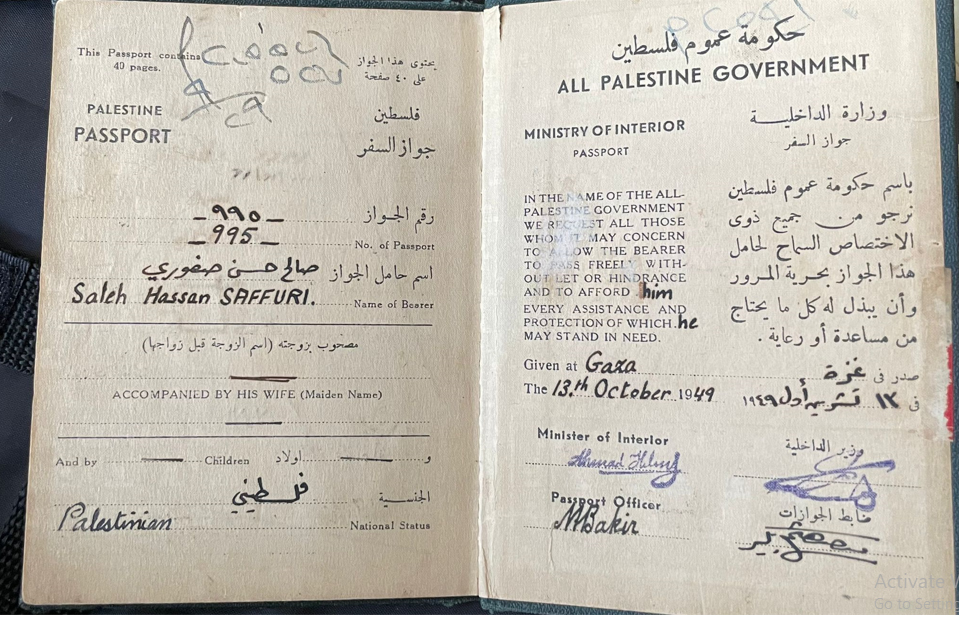 This Passport contains
40 pages.
يحتوي هذا الجواز
على ٤٠ صفحة
PALESTINE
PASSPORT
فلسطين
جواز السفر
ـ ٩٩٥ ـ
رقم الجواز
_ 995 _
No. of Passport
صالح حسن صفوري
اسم حامل الجواز
Saleh Hassan SAFFURI.
Name of Bearer
مصحوب بزوجته (اسم الزوجة قبل زواجها)
ACCOMPANIED BY HIS WIFE (Maiden Name)
And by — Children
و — اولاد
فلسطيني
الجنسية
Palestinian
National Status
حكومة عموم فلسطين
ALL PALESTINE GOVERNMENT
MINISTRY OF INTERIOR
PASSPORT
وزارة الداخلية
جواز السفر
IN THE NAME OF THE ALL-
PALESTINE GOVERNMENT
WE REQUEST ALL THOSE
WHOM IT MAY CONCERN
TO ALLOW THE BEARER
TO PASS FREELY WITH-
OUT LET OR HINDRANCE
AND TO AFFORD him
EVERY ASSISTANCE AND
PROTECTION OF WHICH he
MAY STAND IN NEED.
باسم حكومة عموم فلسطين
نرجو من جميع ذوى
الاختصاص السماح لحامل
هذا الجواز بحرية المرور
وأن يبذل له كل ما يحتاج
من مساعدة أو رعاية .
Given at Gaza
صدر فى غزة
The 13.th October 1949
فى ١٣ تشرين أول ١٩٤٩
Minister of Interior
وزير الداخلية
Passport Officer
ضابط الجوازات
M Bakir
Activate
Go to Setting